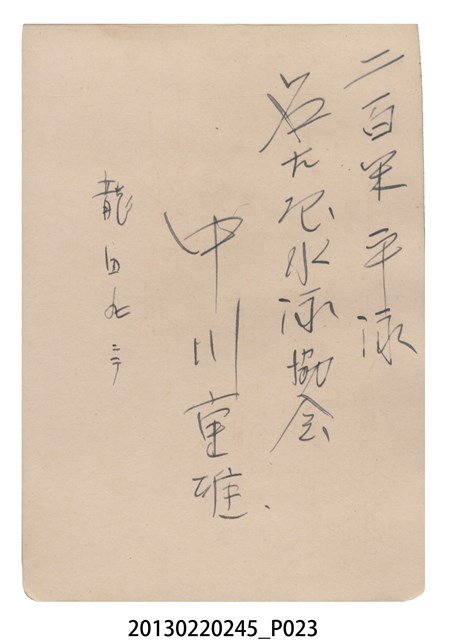 二百米平泳
名古屋水泳協会
中川重雄.
龍田
20130220245_P023